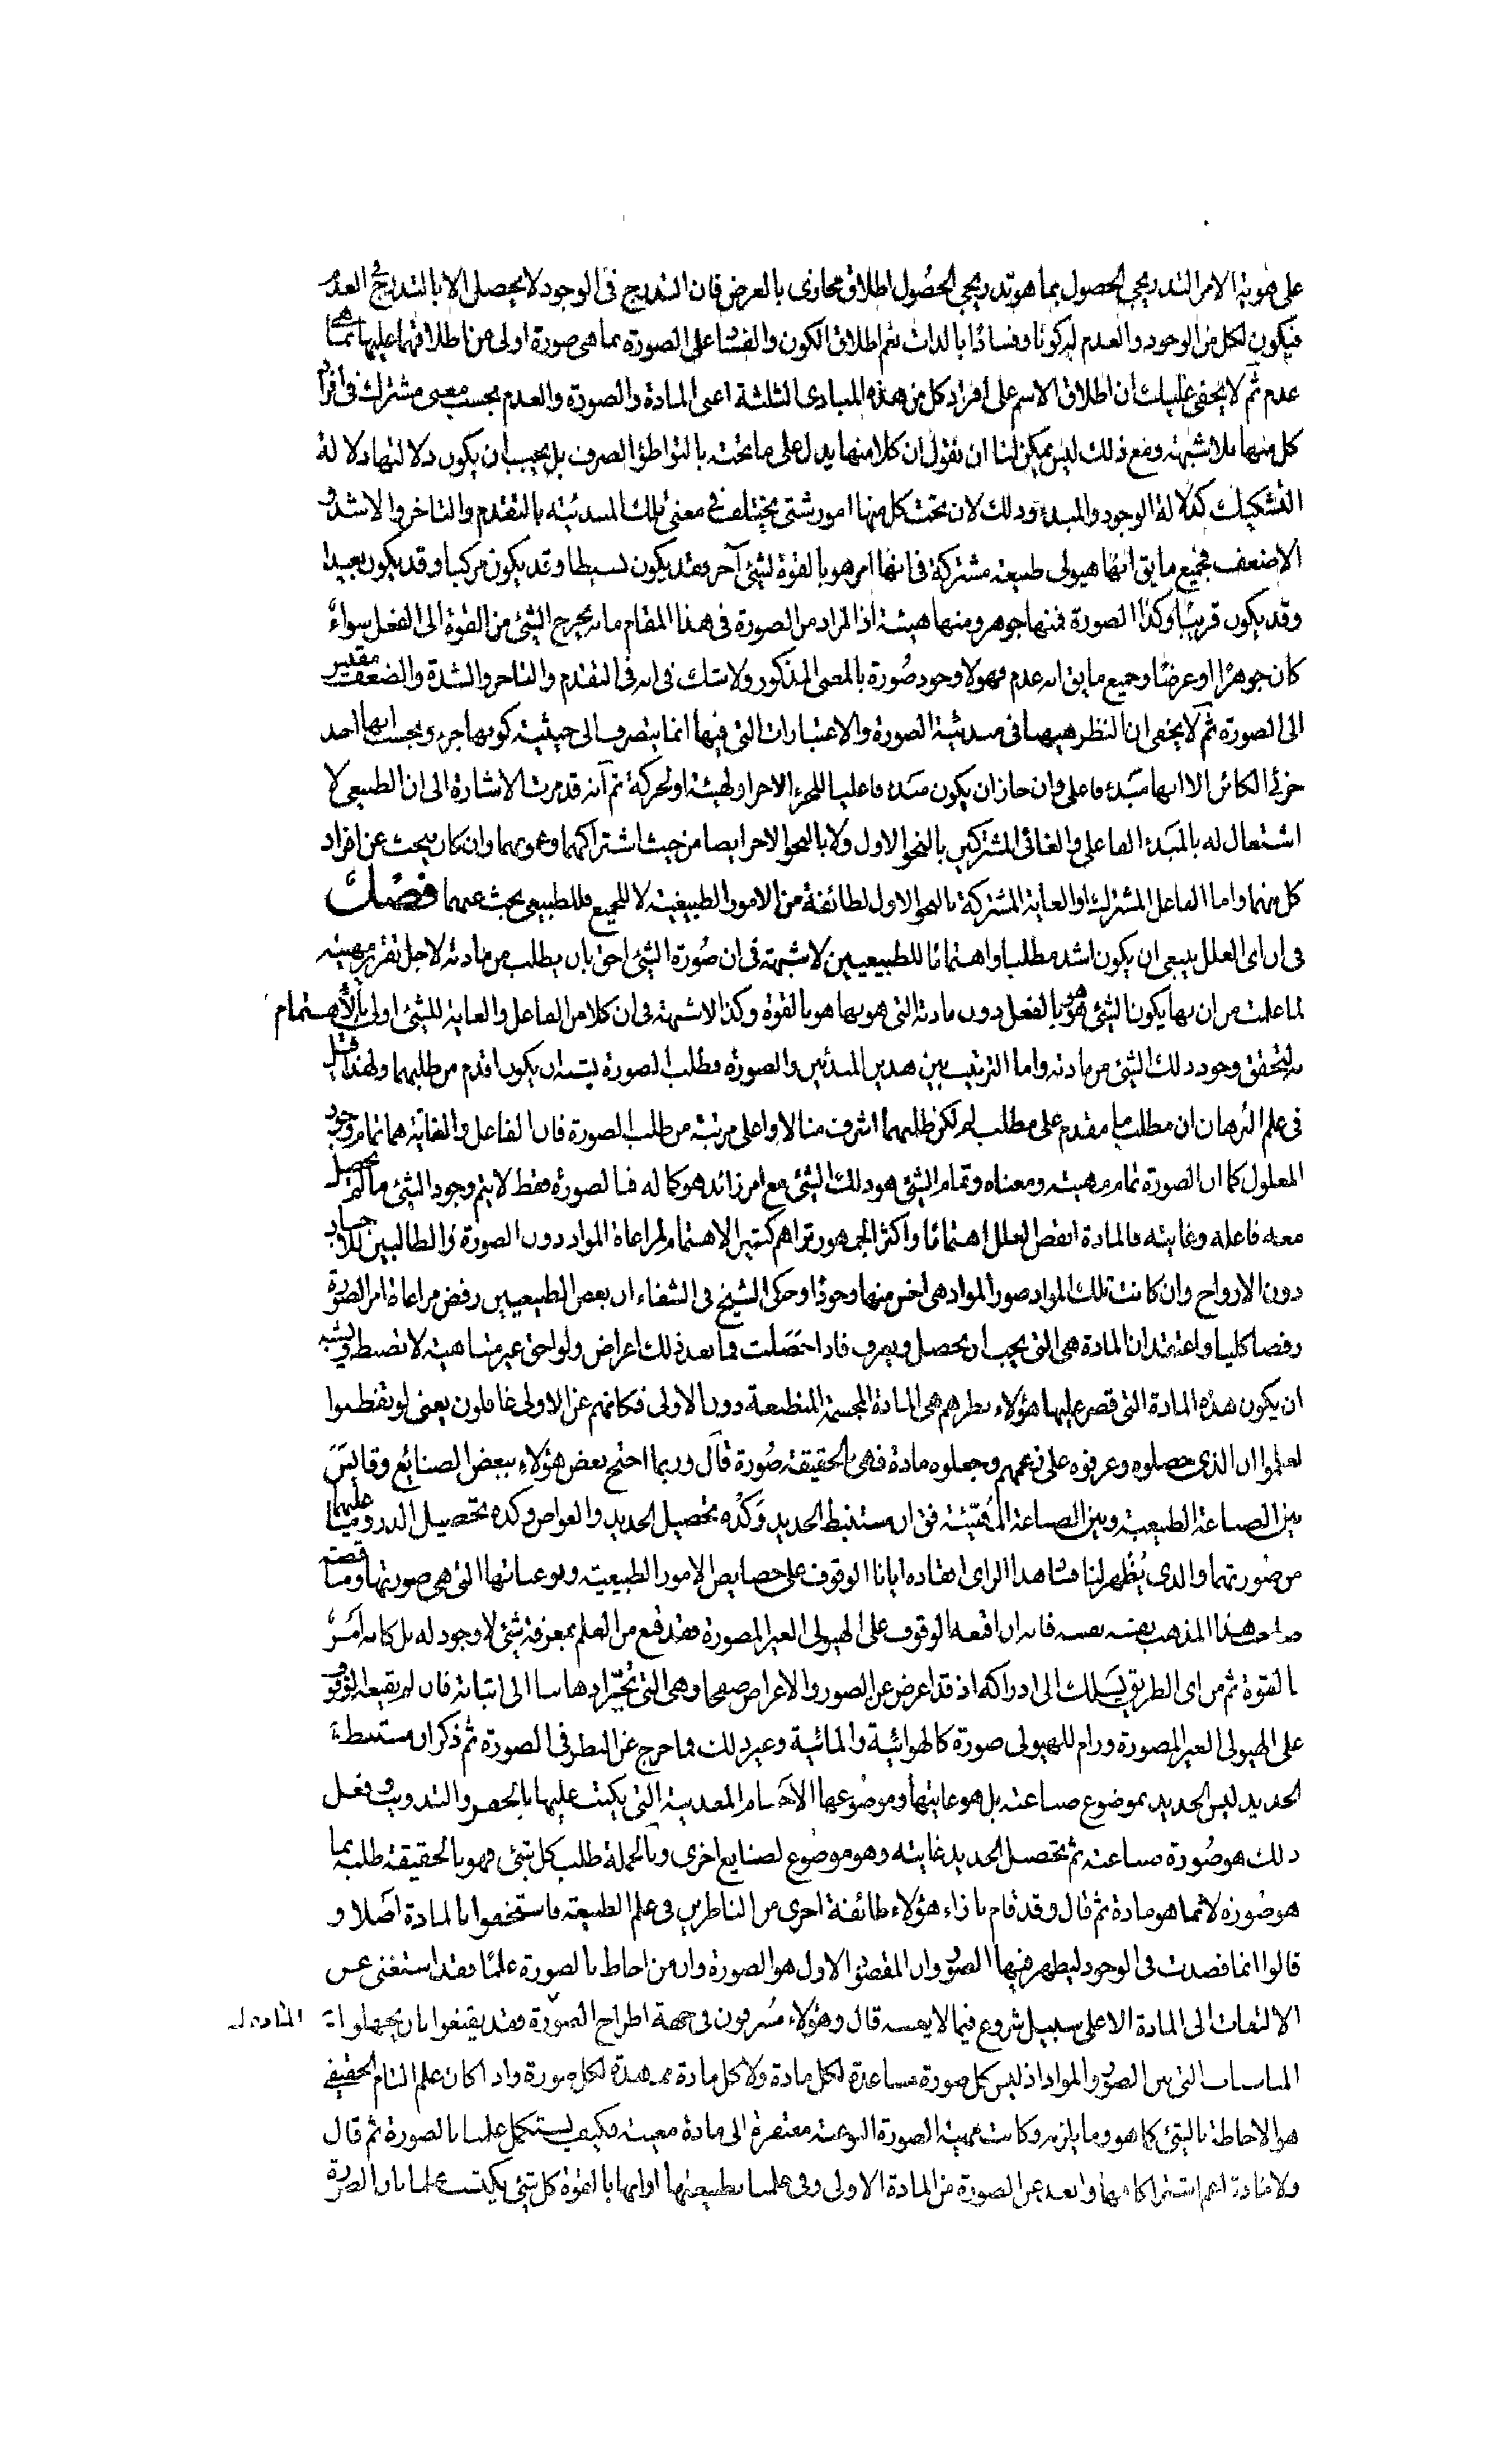 على هوية الامر التدريجي الحصول بما هو تدريجي الحصول اطلاق مجازى بالعرض فان التدريج فى الوجود لا يحصل الا بالتدريج العدم
فيكون لكل من الوجود والعدم لم كونا وفسادا بالذات نعم اطلاق الكون والفساد على الصورة بما هى صورة اولى من اطلاقهما عليها بما هى
عدم ثم لا يخفى عليك ان اطلاق الاسم على افراد كل من هذه المبادى الثلثة اعنى المادة والصورة والعدم بحسب معنى مشترك فى افراد
كل منها بلا شبهة ومع ذلك ليس يمكن لنا ان نقول ان كلا منها يدل على ما تحته بالتواطؤ الصرف بل يجب ان يكون دلالتها دلالة
التشكيك كدلالة الوجود والمبدء وذلك لان تحت كل منها امور شتى يختلف فى معنى تلك المبدئية بالتقدم والتاخر والاشد و
الاضعف فجميع ما يق انها هيولى طبيعة مشتركة فى انها امر هو بالقوة لشئ آخر وقد يكون بسيطا وقد يكون مركبا وقد يكون بعيدا
وقد يكون قريبا وكذا الصورة فمنها جوهر ومنها هيئة اذ المراد من الصورة فى هذا المقام ما به يخرج الشئ من القوة الى الفعل سواء
كان جوهرا او عرضا وجميع ما يق انه عدم فهو لا وجود صورة بالمعنى المذكور ولا شك فى انه فى التقدم والتاخر والشدة والضعف مقيس
الى الصورة ثم لا يخفى ان النظر ههنا فى مبدئية الصورة والاعتبارات التى فيها انما يتصرف الى حيثية كونها جزء وبحسب انها احد
جزئى الكائن لا انها مبدء فاعلى وان جاز ان يكون مبدء فاعليا للجزء الاخر او لهيئة او لحركة ثم انه قد مرت الاشارة الى ان الطبيعى لا
اشتغال له بالمبدء الفاعلى والغائى المشتركين بالنحو الاول ولا بالنحو الاخر ايضا من حيث اشتراكهما وعمومهما وان كان يبحث عن افراد
كل منهما واما الفاعل المشترك او الغاية المشتركة بالنحو الاول لطائفة من الامور الطبيعية لا للجميع فللطبيعى بحث عنهما فصل
فى ان اى العلل ينبغى ان يكون اشد مطلبا واهتماما للطبيعيين لا شبهة فى ان صورة الشئ احق بان يطلب من مادته لاجل تقرير مهيته
لما علمت من ان بها يكون الشئ هو هو بالفعل دون مادته التى هو بها هو بالقوة وكذا لا شبهة فى ان كلا من الفاعل والغاية للشئ اولى بالاهتمام
بتحقق وجود ذلك الشئ من مادته واما الترتيب بين هذين المبدئين والصورة فطلب الصورة يشبه ان يكون اقدم من طلبهما ولهذا قيل
فى علم البرهان ان مطلب ما مقدم على مطلب لم لكن طلبهما اشرف منالا واعلى مرتبة من طلب الصورة فان الفاعل والغاية هما تمام وجود
المعلول كما ان الصورة تمام مهيته ومعناه وتمام الشئ هو ذلك الشئ مع امر زائد هو كماله فبالصورة فقط لا يتم وجود الشئ ما لم يحصل
معه فاعله وغايته فالمادة انقص العلل اهتماما واكثر الجمهور تراهم كثير الاهتمام لمراعاة المواد دون الصورة والطالبين للاجساد
دون الارواح وان كانت تلك المواد صور المواد هى اخس منها وجودا وحكى الشيخ فى الشفاء ان بعض الطبيعيين رفض مراعاة امر الصورة
رفضا كليا واعتقد ان المادة هى التى يجب ان يحصل ويعرف فاذا حصلت فما بعد ذلك اعراض ولواحق غير متناهية لا تضبط ويشبه
ان يكون هذه المادة التى قصر عليها هؤلاء نظرهم هى المادة المجسمة المنطبعة دون الاولى فكانهم عن الاولى غافلون يعنى لو تفطنوا
لعلموا ان الذى حصلوه وعرفوه على زعمهم وجعلوه مادة فهى بالحقيقة صورة قال وربما احتج بعض هؤلاء ببعض الصنايع وقايس
بين الصناعة الطبيعية وبين الصناعة المهنيئة فق ان مستنبط الحديد وكده تحصيل الحديد والغواص وكده تحصيل الدر وما عليهما
من صورتهما والذى يظهر لنا فساد هذا الراى افقاده ايانا الوقوف على خصايص الامور الطبيعية ونوعياتها التى هى صورتها ومناقضة
صاحب هذا المذهب نفسه نفسه فانه ان اقنعه الوقوف على الهيولى الغير المصورة فقد قنع من العلم بمعرفة شئ لا وجود له بل كانه امر
بالقوة ثم من اى الطريق يسلك الى ادراكه اذ قد اعرض عن الصور والاعراض صفحا وهى التى تجر اذهاننا الى اثباته فان لم يقنعه الوقوف
على الهيولى الغير المصورة ورام للهيولى صورة كالهوائية والمائية وغير ذلك فما خرج عن النظر فى الصورة ثم ذكر ان مستنبط
الحديد ليس الحديد بموضوع صناعته بل هو غايتها وموضوعها الاجسام المعدنية التى يكب عليها بالحفر والتذويب وفعل
ذلك هو صورة صناعته ثم تحصيل الحديد غايته وهو موضوع لصنايع اخرى وبالجملة طلب كل شئ فهو بالحقيقة طلبه بما
هو صورة لا بما هو مادة ثم قال وقد قام بازاء هؤلاء طائفة اخرى من الناظرين فى علم الطبيعة فاستخفوا بالمادة اصلا و
قالوا انما قصدت فى الوجود ليظهر فيها الصور وان المقصود الاول هو الصورة وان من احاط بالصورة علما فقد استغنى عن
الالتفات الى المادة الا على سبيل شروع فيما لا يعنيه قال وهؤلاء مسرفون فى جهة اطراح الصورة فقد يقنعوا بان يجهلوا المادة ل
المناسبات التى بين الصور والمواد اذ ليس كل صورة مساعدة لكل مادة ولا كل مادة ممهدة لكل صورة واذا كان علم التام الحقيقى
هو الاحاطة بالشئ كما هو وما يلزمه وكانت مهية الصورة النوعية مفتقرة الى مادة معينة فكيف يستكمل علمنا بالصورة ثم قال
ولا مادة اعم اشتراكا منها وابعد عن الصورة من المادة الاولى وفى علمنا بطبيعتها وانها بالقوة كل شئ يكتسب علما بان الصورة